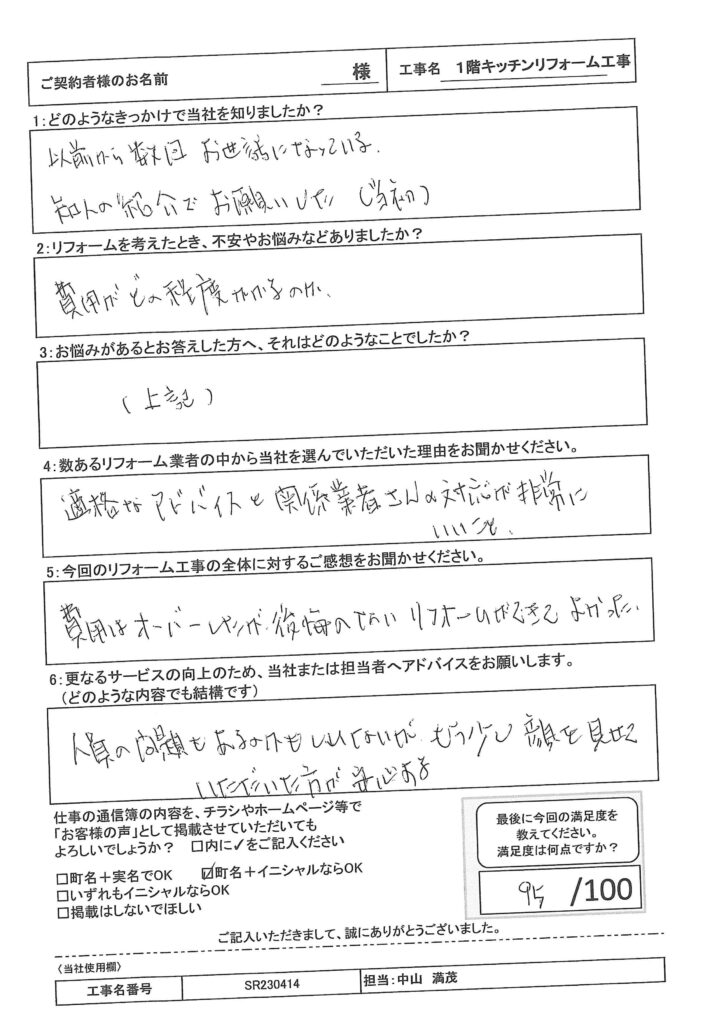 ご契約者様のお名前 様 工事名 1階キッチンリフォーム工事
1:どのようなきっかけで当社を知りましたか？
以前から数回 お世話になっている.
知人の紹介で お願いした (当初)
2:リフォームを考えたとき、不安やお悩みなどありましたか？
費用がどの程度かかるのか.
3:お悩みがあるとお答えした方へ、それはどのようなことでしたか？
(上記)
4:数あるリフォーム業者の中から当社を選んでいただいた理由をお聞かせください。
適格なアドバイスと関係業者さんの対応が非常に
いいこと.
5:今回のリフォーム工事の全体に対するご感想をお聞かせください。
費用はオーバーしたが、後悔のない リフォームができて よかった.
6:更なるサービスの向上のため、当社または担当者へアドバイスをお願いします。
(どのような内容でも結構です)
人員の問題もあるかもしれないが もう少し 顔を見せて
いただいた方が安心ある
仕事の通信簿の内容を、チラシやホームページ等で
「お客様の声」として掲載させていただいても
よろしいでしょうか？ □内に✓をご記入ください
□町名＋実名でOK ☑町名＋イニシャルならOK
□いずれもイニシャルならOK
□掲載はしないでほしい
最後に今回の満足度を
教えてください。
満足度は何点ですか？
95 /100
ご記入いただきまして、誠にありがとうございました。
〈当社使用欄〉
工事名番号 SR230414 担当:中山 満茂